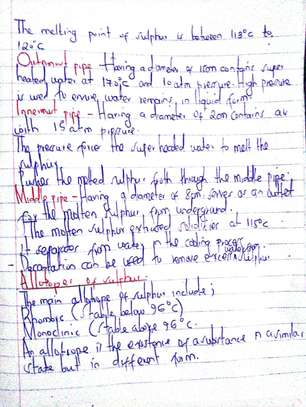 The melting point of sulphur is between 113°c to
120°c
Outermost pipe - Having a diameter of 15cm contains super
heated water at 170°c and 10 atm pressure. High pressure
is used to ensure water remains in liquid form
Innermost pipe - Having a diameter of 2cm contains air
with 15 atm pressure
The pressure force the super heated water to melt the
sulphur.
Pushes the melted sulphur forth through the middle pipe
Middle pipe - Having a diameter of 8cm, serves as an outlet
for the molten sulphur from underground.
The molten sulphur extruded solidifies at 115°c
It separates from water in the cooling process
Decantation can be used to remove excess sulphur
Allotropes of sulphur
The main allotrope of sulphur include;
Rhombic (stable below 96°c)
Monoclinic (stable above 96°c.
An allotrope is the existence of a substance in a similar
state but in different form.